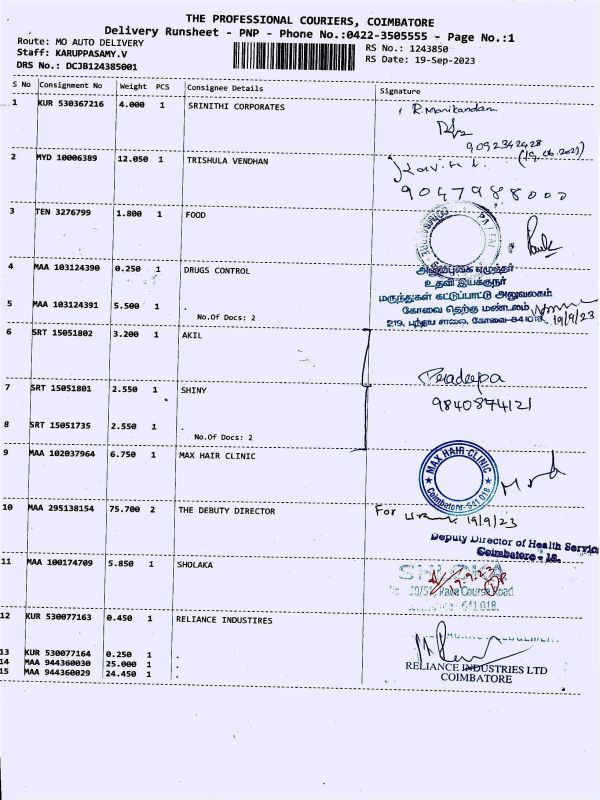 THE PROFESSIONAL COURIERS, COIMBATORE
Delivery Runsheet - PNP - Phone No.:0422-3505555 - Page No.:1
Route: MO AUTO DELIVERY RS No.: 1243850
Staff: KARUPPASAMY.V RS Date: 19-Sep-2023
DRS No.: DCJB124385001
S No Consignment No Weight PCS Consignee Details Signature
1 KUR 530367216 4.000 1 SRINITHI CORPORATES
R. Manikandan
9092342428
2 MYD 10006389 12.050 1 TRISHULA VENDHAN
9047988000
3 TEN 3276799 1.800 1 FOOD
4 MAA 103124390 0.250 1 DRUGS CONTROL
உதவி இயக்குநர்
மருந்துகள் கட்டுப்பாட்டு அலுவலகம்
5 MAA 103124391 5.500 1 .
கோவை தெற்கு மண்டலம்
No.Of Docs: 2
219, பந்தய சாலை, கோவை-641018 19/9/23
6 SRT 15051802 3.200 1 AKIL
Pradeepa
7 SRT 15051801 2.550 1 SHINY
9840874121
8 SRT 15051735 2.550 1 .
No.Of Docs: 2
9 MAA 102037964 6.750 1 MAX HAIR CLINIC
MAX HAIR CLINIC
Coimbatore-641 018
10 MAA 295138154 75.700 2 THE DEBUTY DIRECTOR
For 19/9/23
Deputy Director of Health Servic
Coimbatore - 18.
11 MAA 100174709 5.850 1 SHOLAKA
Race Course Road
641 018.
12 KUR 530077163 0.450 1 RELIANCE INDUSTIRES
13 KUR 530077164 0.250 1 .
14 MAA 944360030 25.000 1 .
15 MAA 944360029 24.450 1 .
RELIANCE INDUSTRIES LTD
COIMBATORE